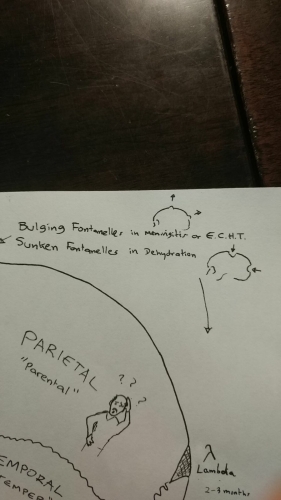 Bulging Fontanelles in meningitis or E.C.H.T.
Sunken Fontanelles in Dehydration
PARIETAL
"Parental"
? ?
?
λ
Lambda
2-3 months
EMPORAL
TEMPER